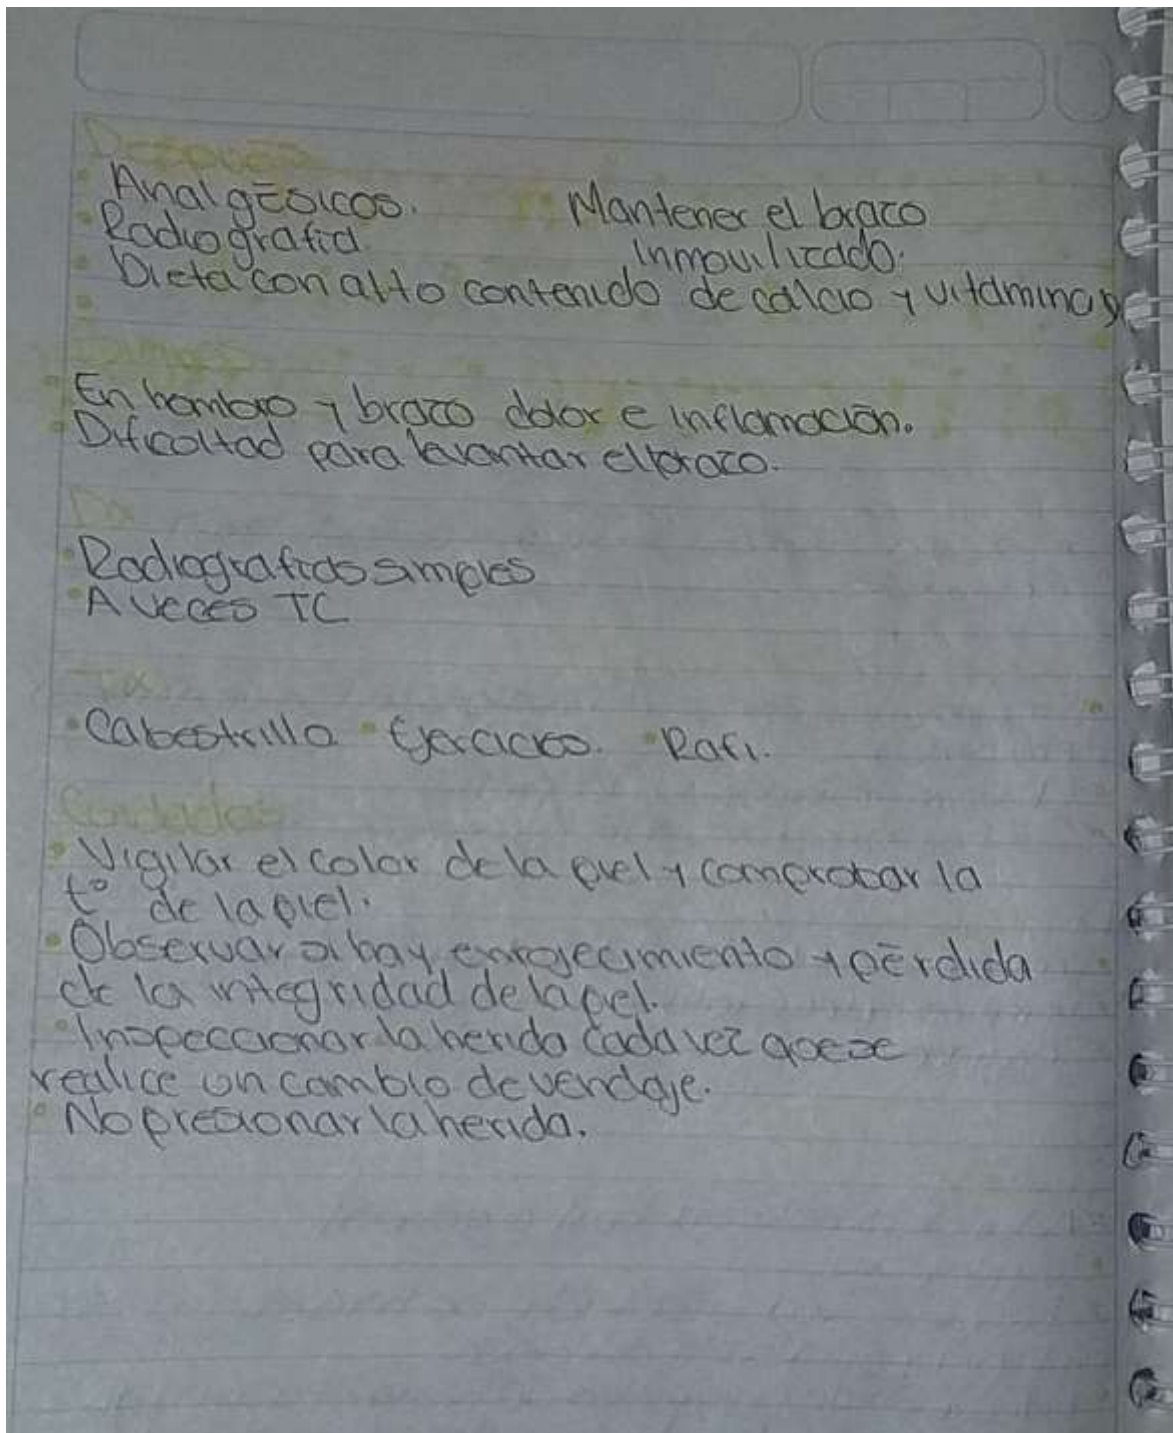 Después
Analgésicos.
Mantener el brazo
Radiografía.
Inmouilizado.
Dieta con alto contenido de calcio y vitamina D
En hombro y brazo dolor e inflamación.
Dificoltad para levantar el brazo.
Dx
Radiografías simples
A veces TC
Tx
Cabestrillo Ejercicios. Rafi.
Cuidados
Vigilar el color de la piel y comprobar la
t° de la piel.
Observar si hay enrojecimiento y pérdida
de la integridad de la piel.
Inspeccionar la herida cada vez que se
realice un cambio de vendaje.
No presionar la herida.